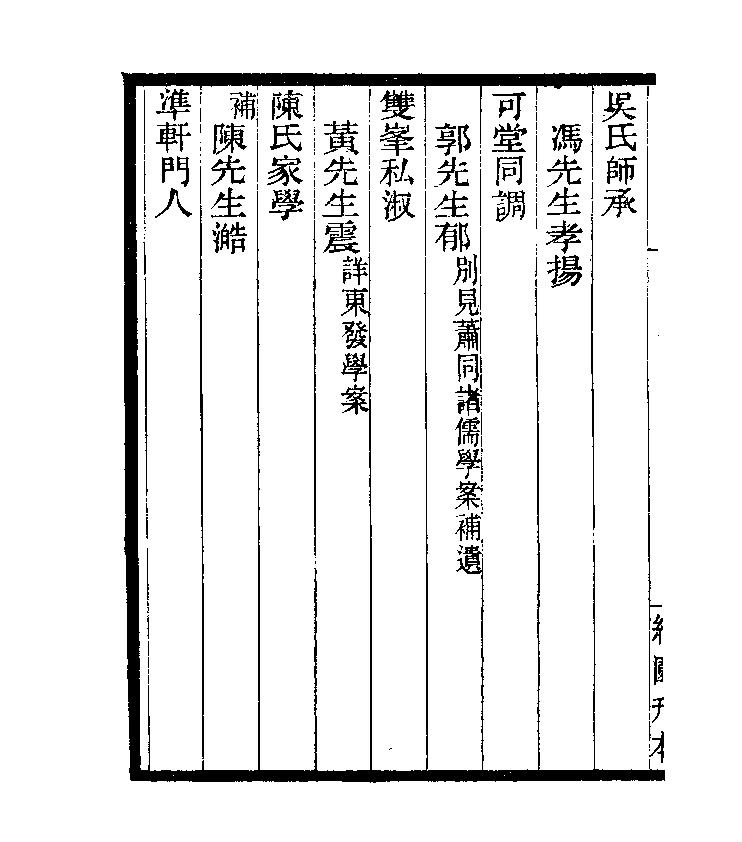 吳氏師承
馮先生孝揚
可堂同調
郭先生郁別見蕭同諸儒學案補遺
雙峯私淑
黃先生震詳東發學案
陳氏家學
補陳先生澔
準軒門人
約園刊本